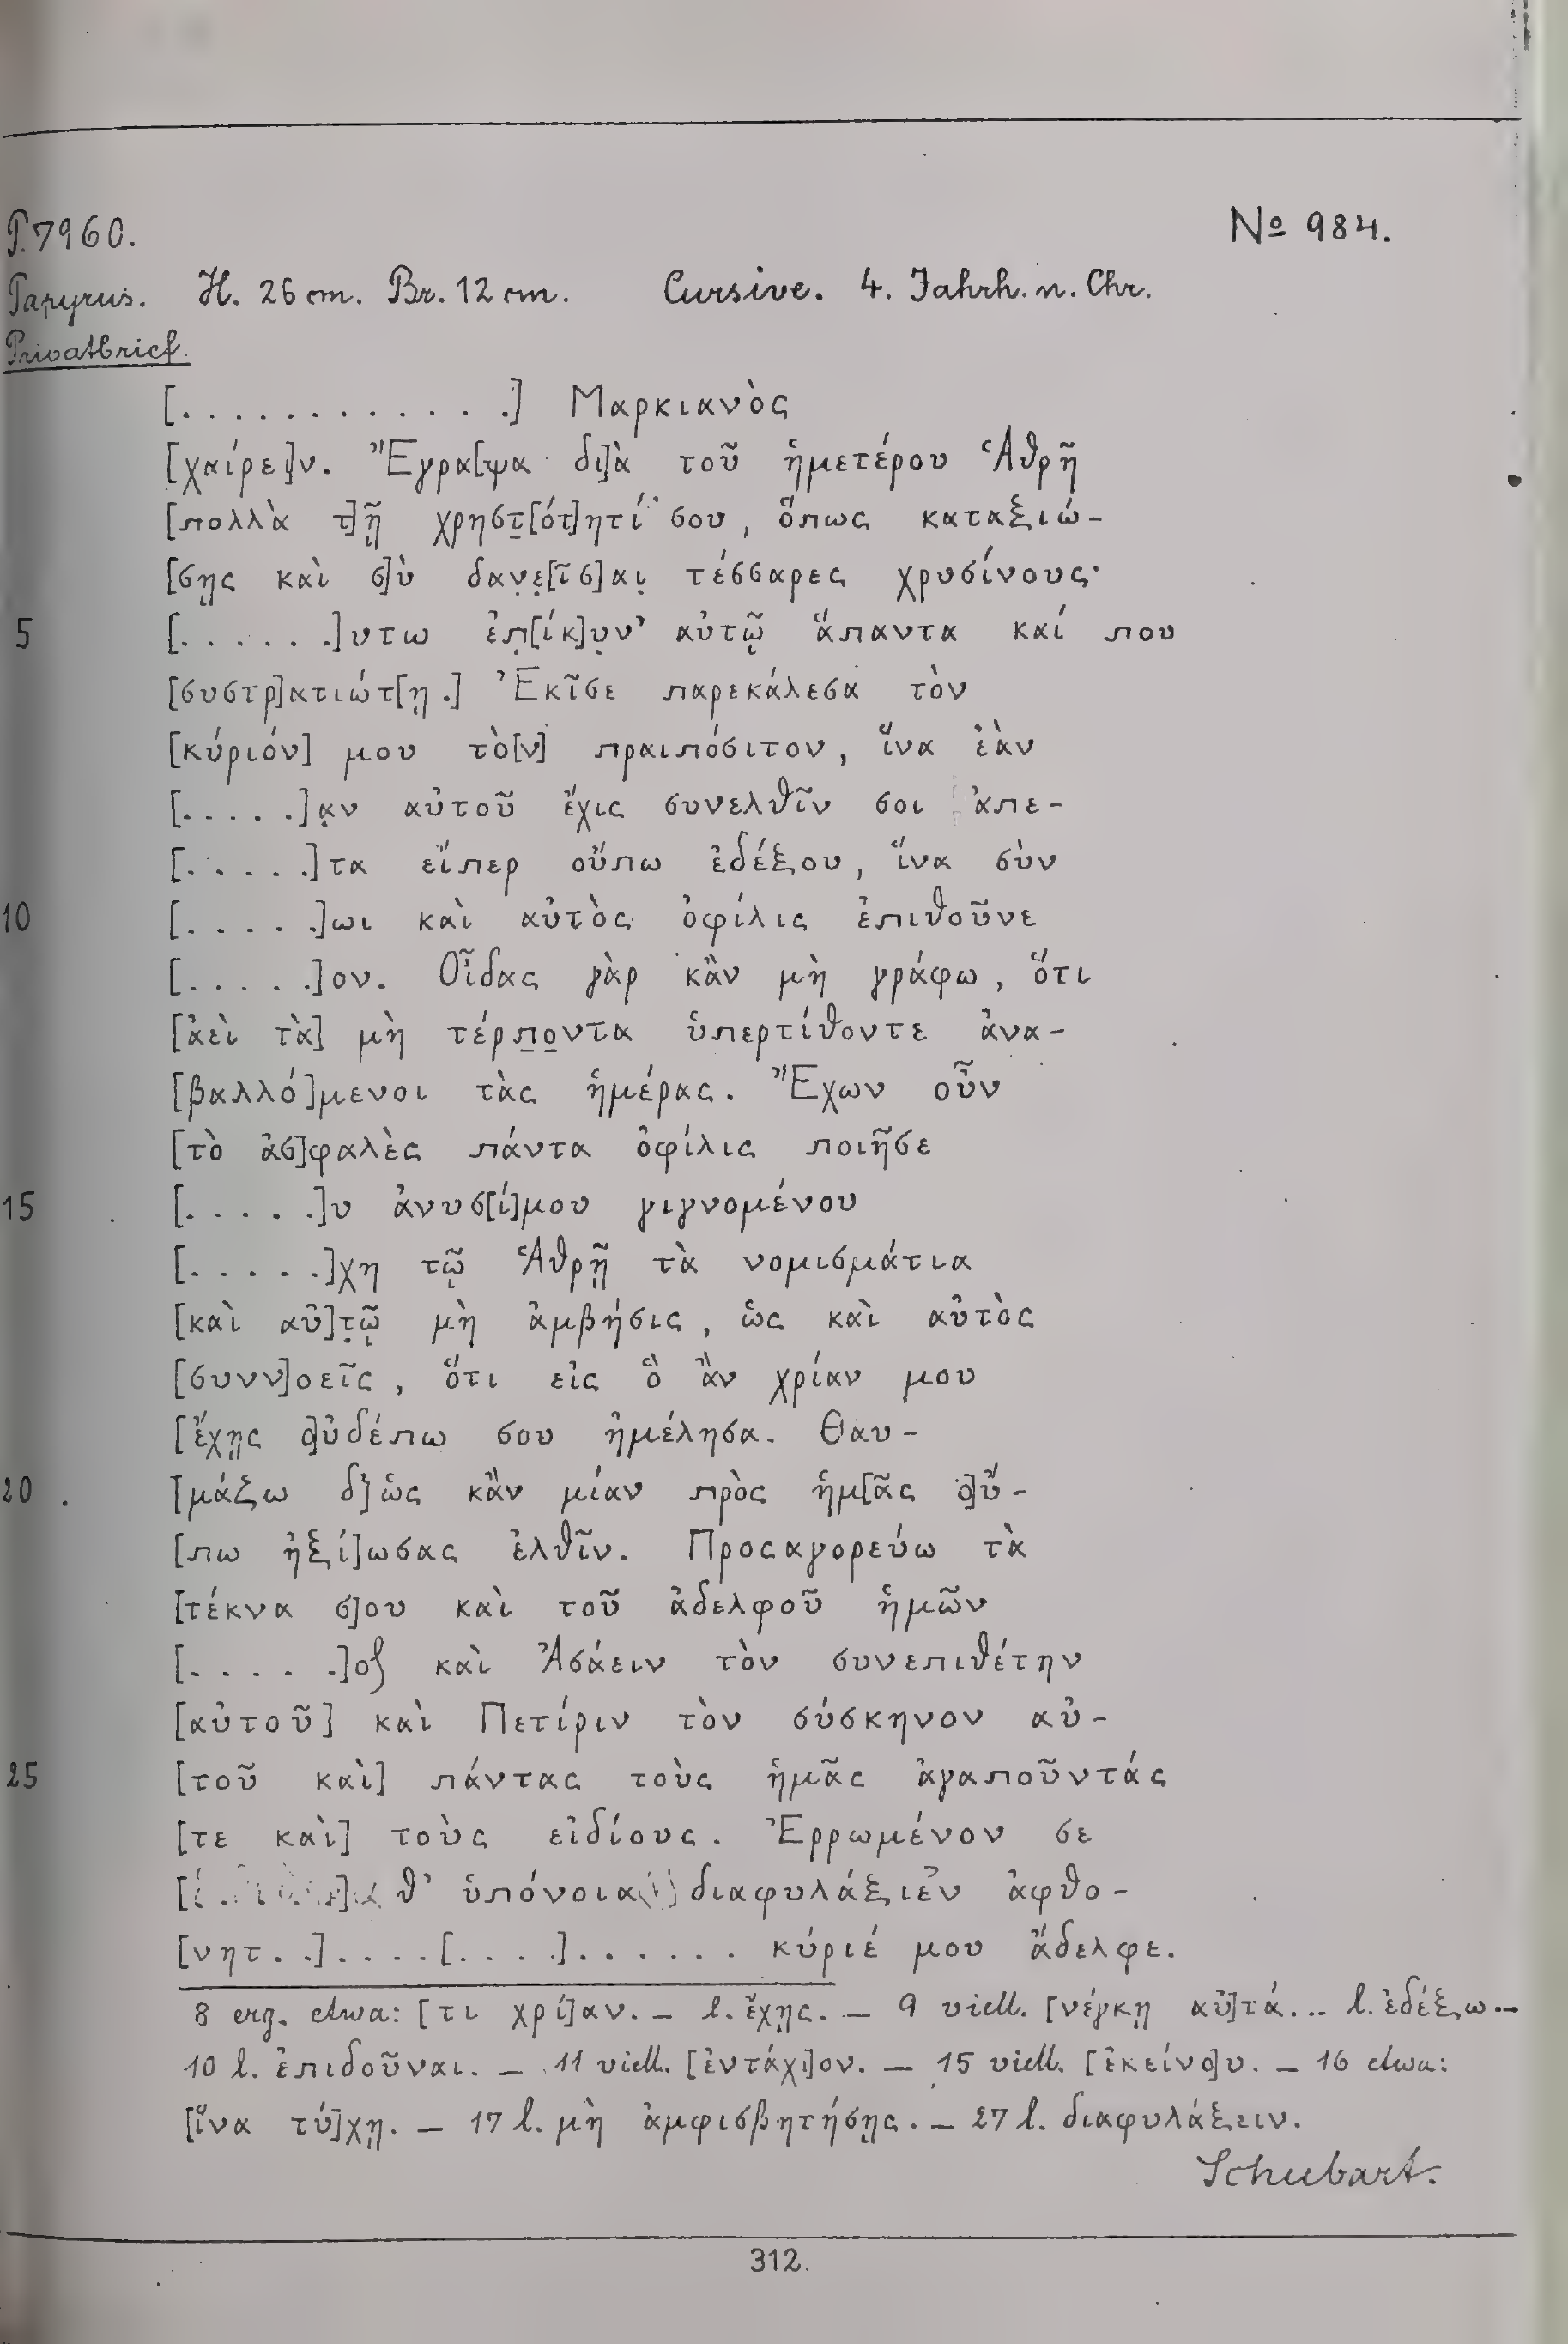 P. 7960. No 984.
Papyrus. H. 26 cm. Br. 12 cm. Cursive. 4. Jahrh. n. Chr.
Privatbrief.
[. . . . . . . . . . . . .] Μαρκιανὸς
[χαίρει]ν. Ἔγρα[ψα δι]ὰ τοῦ ἡμετέρου Ἁθρῆ
[πολλὰ τ]ῇ χρησṭ[ότ]ητί σου, ὅπως καταξιώ-
[σῃς καὶ σ]ὺ δαṿẹ[ῖσ]αι̣ τέσσαρες χρυσίνους·
5 [. . . . . .]υτω ἐπ̣[ίκ]υ̣ν’ αὐτῷ ἅπαντα καί που
[συστρ]ατιώτ[ῃ .] Ἐκῖσε παρεκάλεσα τὸν
[κύριόν] μου τὸ[ν] πραιπόσιτον, ἵνα ἐὰν
[. . . . .]α̣ν αὐτοῦ ἔχις συνελθῖν σοι ἀπε-
[. . . . .]τα εἴπερ οὔπω ἐδέξου, ἵνα σὺν
10 [. . . . .]ωι καὶ αὐτὸς ὀφίλις ἐπιθοῦνε
[. . . . .]ον. Οἶδας γὰρ κἂν μὴ γράφω, ὅτι
[ἀεὶ τὰ] μὴ τέρπ̲ο̲ντα ὑπερτίθοντε ἀνα-
[βαλλό]μενοι τὰς ἡμέρας. Ἔχων οὖν
[τὸ ἀσ]φαλὲς πάντα ὀφίλις ποιῆσε
15 [. . . . .]υ ἀνυσ[ί]μου γιγνομένου
[. . . . .]χη τῷ Ἁθρῇ τὰ νομισμάτια
[καὶ αὐ]τ̣ῷ μὴ ἀμβήσις, ὡς καὶ αὐτὸς
[συνν]οεῖς, ὅτι εἰς ὃ ἂν χρίαν μου
[ἔχῃς ο]ὐδέπω σου ἠμέλησα. Θαυ-
20 [μάζω δ]’ ὡς κἂν μίαν πρὸς ἡμ[ᾶς ο]ὔ-
[πω ἠξί]ωσας ἐλθῖν. Προσαγορεύω τὰ
[τέκνα σ]ου καὶ τοῦ ἀδελφοῦ ἡμῶν
[. . . . .]ος καὶ Ἀσάειν τὸν συνεπιθέτην
[αὐτοῦ] καὶ Πετίριν τὸν σύσκηνον αὐ-
25 [τοῦ καὶ] πάντας τοὺς ἡμᾶς ἀγαποῦντάς
[τε καὶ] τοὺς εἰδίους. Ἐρρωμένον σε
θ’ ὑπόνοια διαφυλάξιεν ἀφθο-
[νητ . .] . . . . [. . . .] . . . . . . κύριέ μου ἄδελφε.
8 erg. etwa: [τι χρί]αν. – l. ἔχῃς. – 9 viell. [νέγκῃ αὐ]τά... l. ἐδέξω. –
10 l. ἐπιδοῦναι. – 11 viell. [ἐντάχι]ον. – 15 viell. [ἐκείνο]υ. – 16 etwa:
[ἵνα τύ]χῃ. – 17 l. μὴ ἀμφισβητήσῃς. – 27 l. διαφυλάξειν.
Schubart.
312.